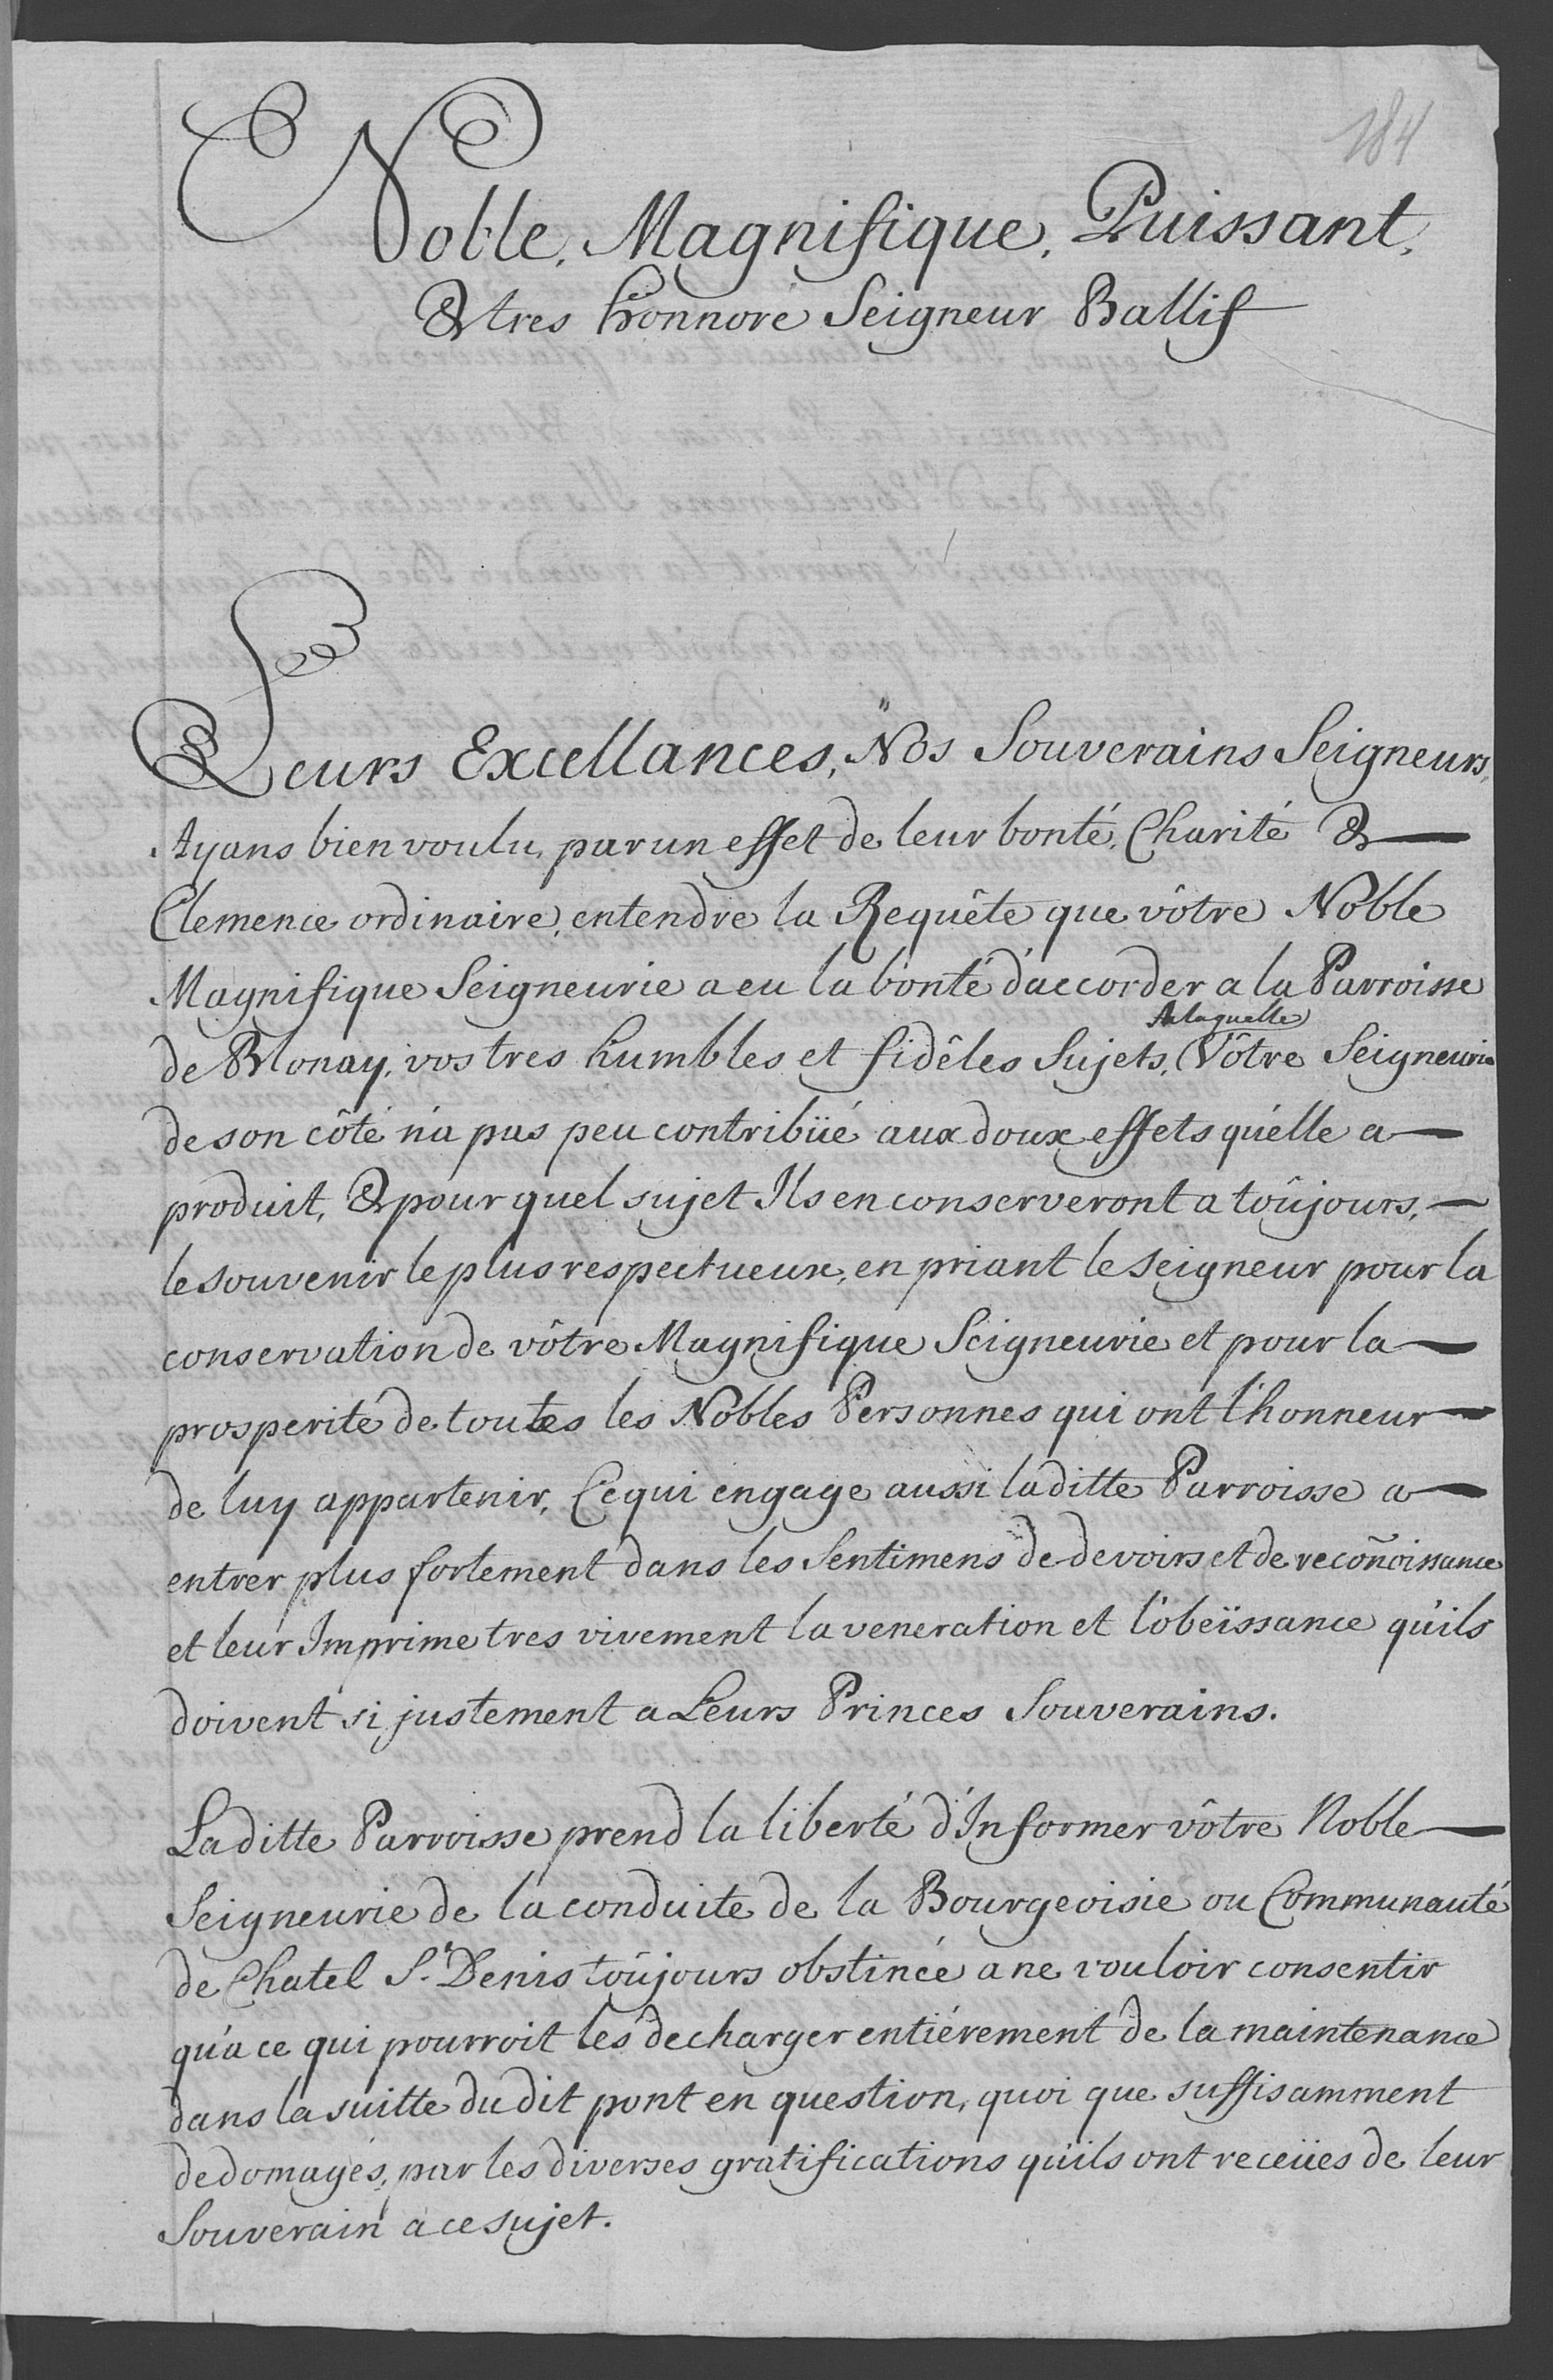 184
Noble, Magnifique, Puissant,
& tres honnoré Seigneur Ballif
Leurs Excellances, Nos Souverains Seigneurs,
Ayans bien voulu, par un effet de leur bonté, Charité &
Clemence ordinaire, entendre la Requête que vôtre Noble
Magnifique Seigneurie a eu la bonté d'accorder a la Parroisse
A laquelle
de Blonay, vos tres humbles et fidêles Sujets, Vôtre Seigneurie
de son côté n'a pas peu contribüé aux doux effets qu'elle a
produit, & pour quel sujet Ils en conserveront a toûjours,
le souvenir le plus respectueux, en priant le seigneur pour la
conservation de vôtre Magnifique Seigneurie et pour la
prosperité de toutes les Nobles Personnes qui ont l'honneur
de luy appartenir, Ce qui engage aussi laditte Parroisse a
entrer plus fortement dans les Sentimens de devoirs et de recoñoissance
et leur Imprime tres vivement la veneration et l'obeïssance qu'ils
doivent si justement a Leurs Princes Souverains.
Laditte Parroisse prend la liberté d'Informer vôtre Noble
Seigneurie de la conduite de la Bourgeoisie ou Communauté
de Chatel St. Denis toûjours obstinée a ne vouloir consentir
qu'a ce qui pourroit les decharger entiérement de la maintenance
dans la suitte du dit pont en question, quoi que suffisamment
dedomagés, par les diverses gratifications qu'ils ont receües de leur
Souverain a ce sujet.